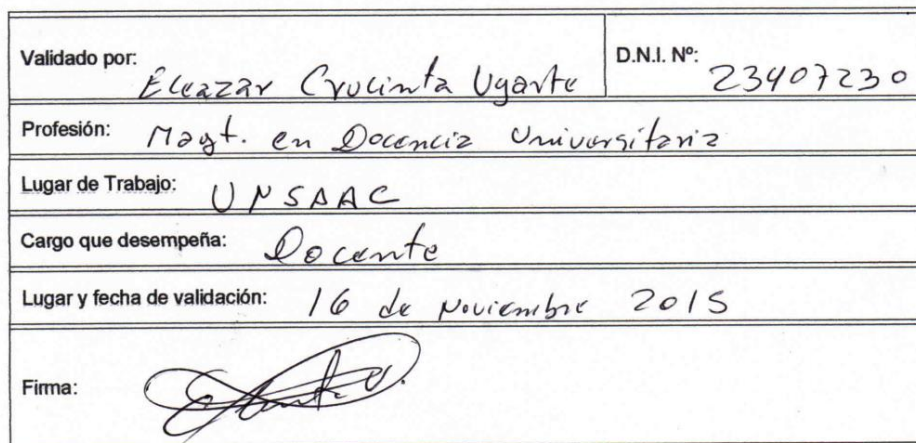 Validado por: Eleazar Crucinta Ugarte D.N.I. Nº: 23407230
Profesión: Magt. en Docencia Universitaria
Lugar de Trabajo: UNSAAC
Cargo que desempeña: Docente
Lugar y fecha de validación: 16 de Noviembre 2015
Firma: